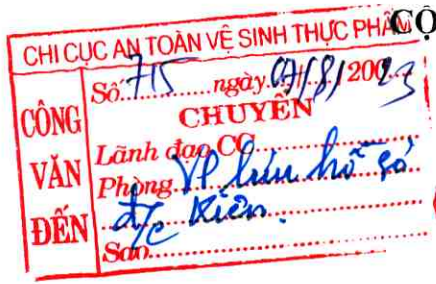 CHI CỤC AN TOÀN VỆ SINH THỰC PHẨM
CỘ
CÔNG VĂN ĐẾN
Số 715 ngày 07/8/2023
CHUYỂN
Lãnh đạo CC
Phòng VP lưu hồ sơ
đ/c Kiên.
Sao